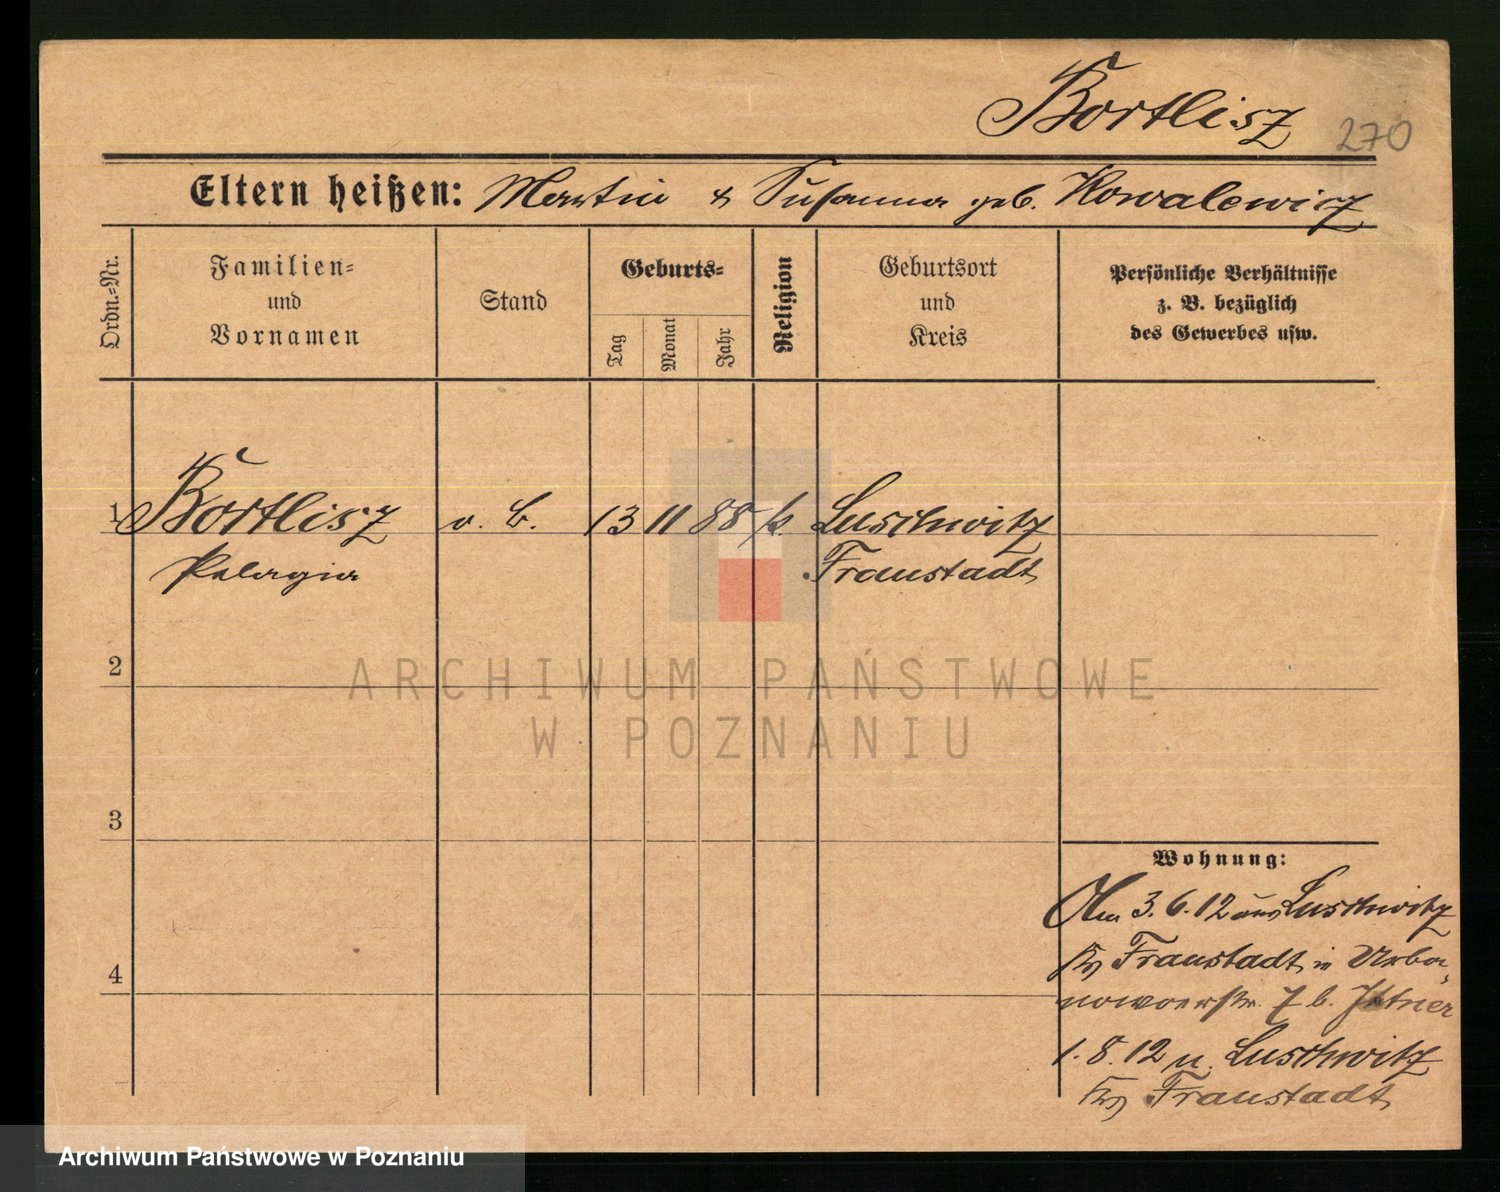 Bortlisz
270
Eltern heißen: Martin & Susanna geb. Kowalewicz
Ordn.-Nr.
Familien-
und
Vornamen
Stand
Geburts-
Tag
Monat
Jahr
Religion
Geburtsort
und
Kreis
Persönliche Verhältnisse
z. B. bezüglich
des Gewerbes usw.
1 Bortlisz o. B. 13 11 88 k. Luschwitz
Pelagia Fraustadt
2
ARCHIWUM PAŃSTWOWE
W POZNANIU
3
Wohnung:
Am 3.6.12 aus Luschwitz
Kr Fraustadt in Urba-
nowoerstr. 7 b. Ittner
4
1.8.12 n. Luschwitz
Kr Fraustadt
Archiwum Państwowe w Poznaniu